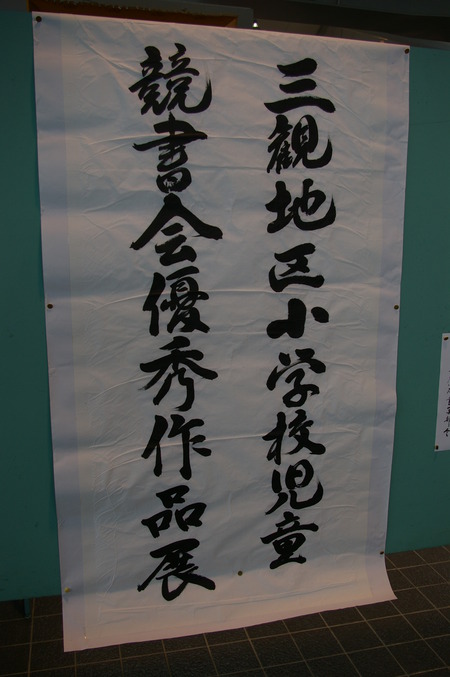 三観地区小学校児童
競書会優秀作品展